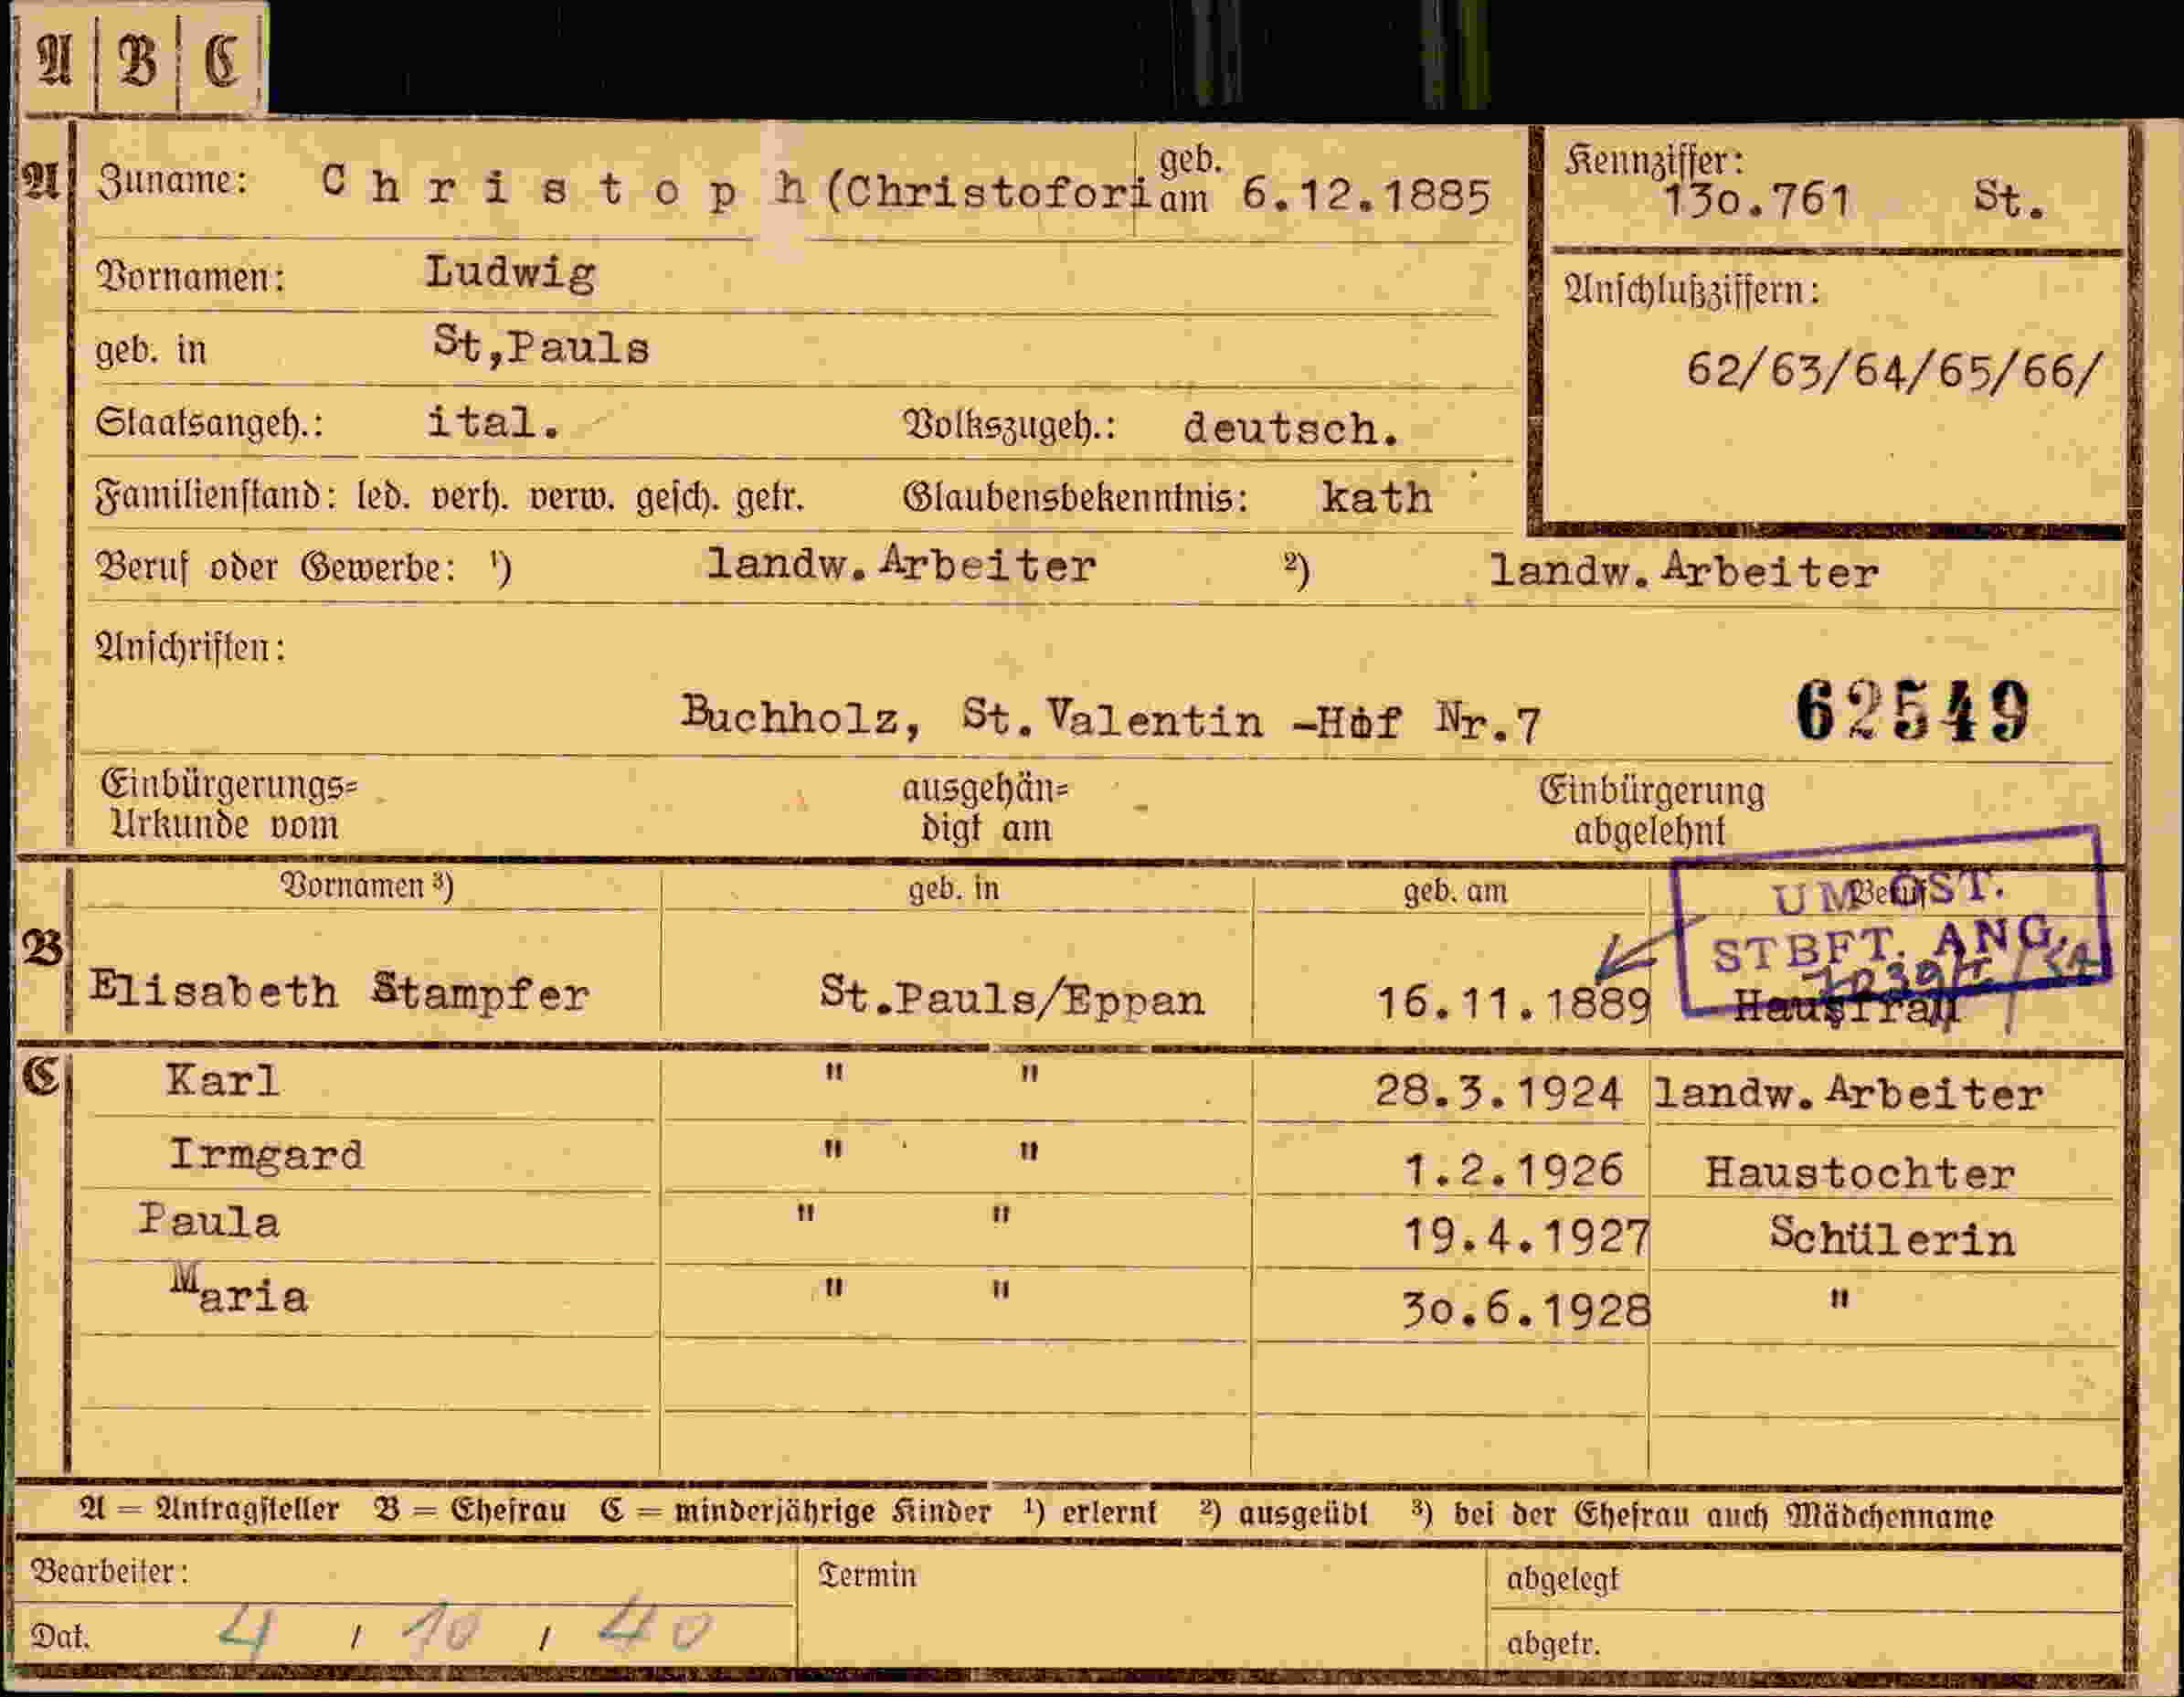 A B C
A Zuname: Christoph (Christofori geb. am 6.12.1885 Kennziffer: 130.761 St.
Vornamen: Ludwig
Anschlußziffern:
geb. in St,Pauls
62/63/64/65/66/
Staatsangeh.: ital. Volkszugeh.: deutsch.
Familienstand: led. verh. verw. gesch. getr. Glaubensbekenntnis: kath
Beruf oder Gewerbe: ¹) landw. Arbeiter ²) landw. Arbeiter
Anschriften:
Buchholz, St. Valentin -Hof Nr.7 62549
Einbürgerungs= ausgehän= Einbürgerung
Urkunde vom digt am abgelehnt
Vornamen ³) geb. in geb. am Beruf
UM ÖST.
STBFT. ANG.
B Elisabeth Stampfer St.Pauls/Eppan 16.11.1889 Hausfrau
C Karl " " 28.3.1924 landw. Arbeiter
Irmgard " " 1.2.1926 Haustochter
Paula " " 19.4.1927 Schülerin
Maria " " 30.6.1928 "
A = Antragsteller B = Ehefrau C = minderjährige Kinder ¹) erlernt ²) ausgeübt ³) bei der Ehefrau auch Mädchenname
Bearbeiter: Termin abgelegt
Dat. 4 / 10 / 40 abgetr.